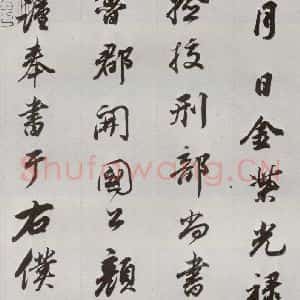 月日金紫光祿
檢挍刑部尚書
魯郡開國公顏
謹奉書于右僕
Shufawang.CN